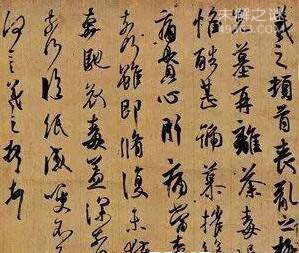 未解之谜
羲之頓首喪亂之極
墓再離荼毒追
惟酷甚號慕摧絶
痛貫心肝痛當奈
奈何雖即脩復未獲
奔馳哀毒益深奈
奈何臨紙感哽不
何言羲之頓首